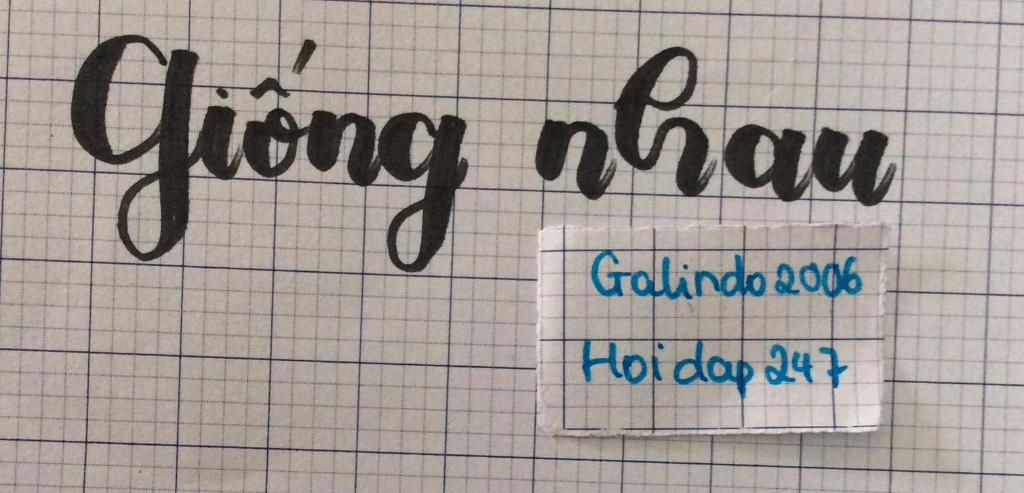 Giống nhau
Galindo2006
Hoidap247